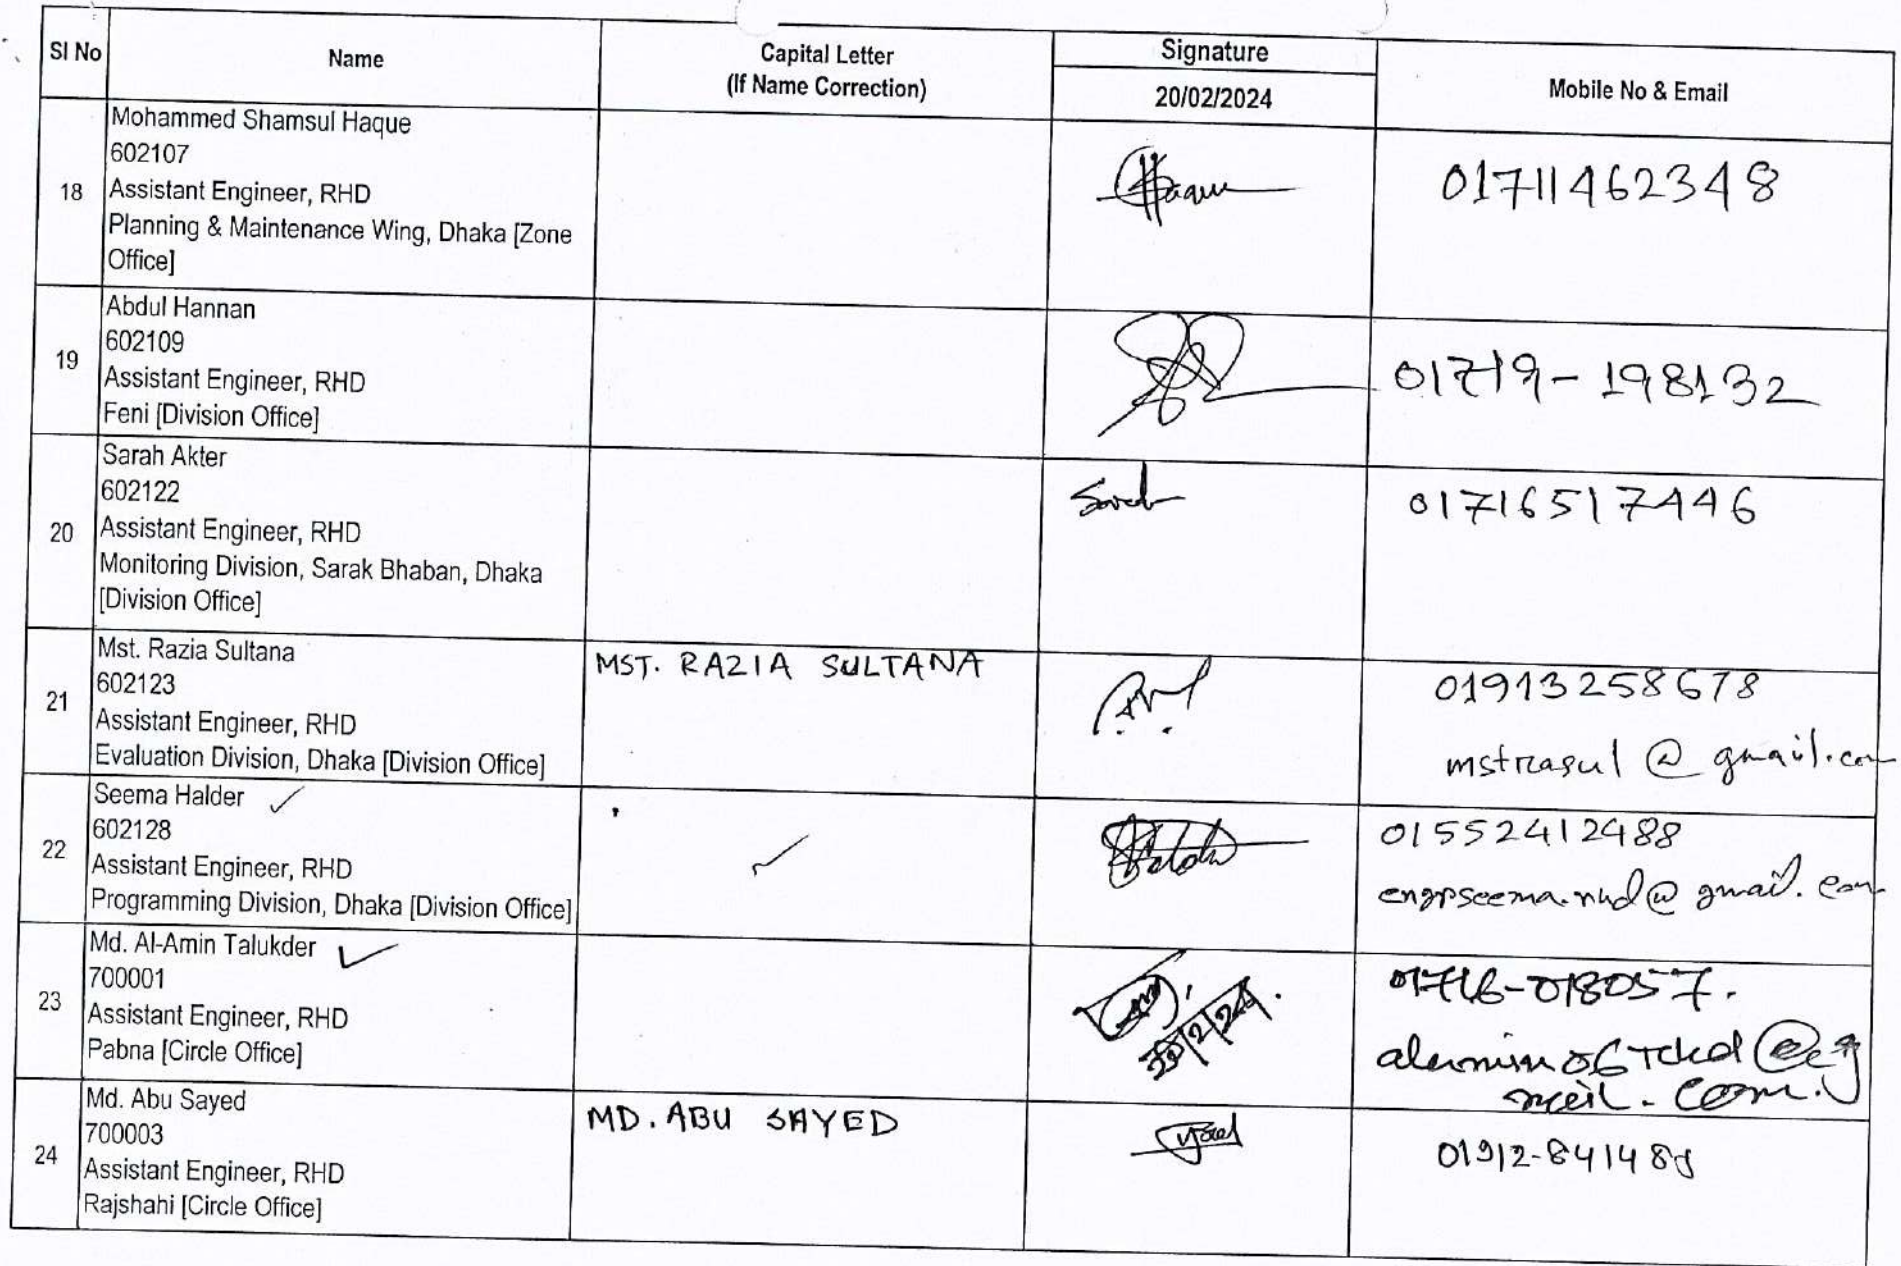 SI No
Name
Capital Letter
(If Name Correction)
Signature
20/02/2024
Mobile No & Email
18
Mohammed Shamsul Haque
602107
Assistant Engineer, RHD
Planning & Maintenance Wing, Dhaka [Zone
Office]
01711462348
19
Abdul Hannan
602109
Assistant Engineer, RHD
Feni [Division Office]
01719-198132
20
Sarah Akter
602122
Assistant Engineer, RHD
Monitoring Division, Sarak Bhaban, Dhaka
[Division Office]
Sarah
01716517446
21
Mst. Razia Sultana
602123
Assistant Engineer, RHD
Evaluation Division, Dhaka [Division Office]
MST. RAZIA SULTANA
01913258678
mstrasul@gmail.com
22
Seema Halder
602128
Assistant Engineer, RHD
Programming Division, Dhaka [Division Office]
01552412488
23
Md. Al-Amin Talukder
700001
Assistant Engineer, RHD
Pabna [Circle Office]
01716-018057.
mail.com.
24
Md. Abu Sayed
700003
Assistant Engineer, RHD
Rajshahi [Circle Office]
MD. ABU SAYED